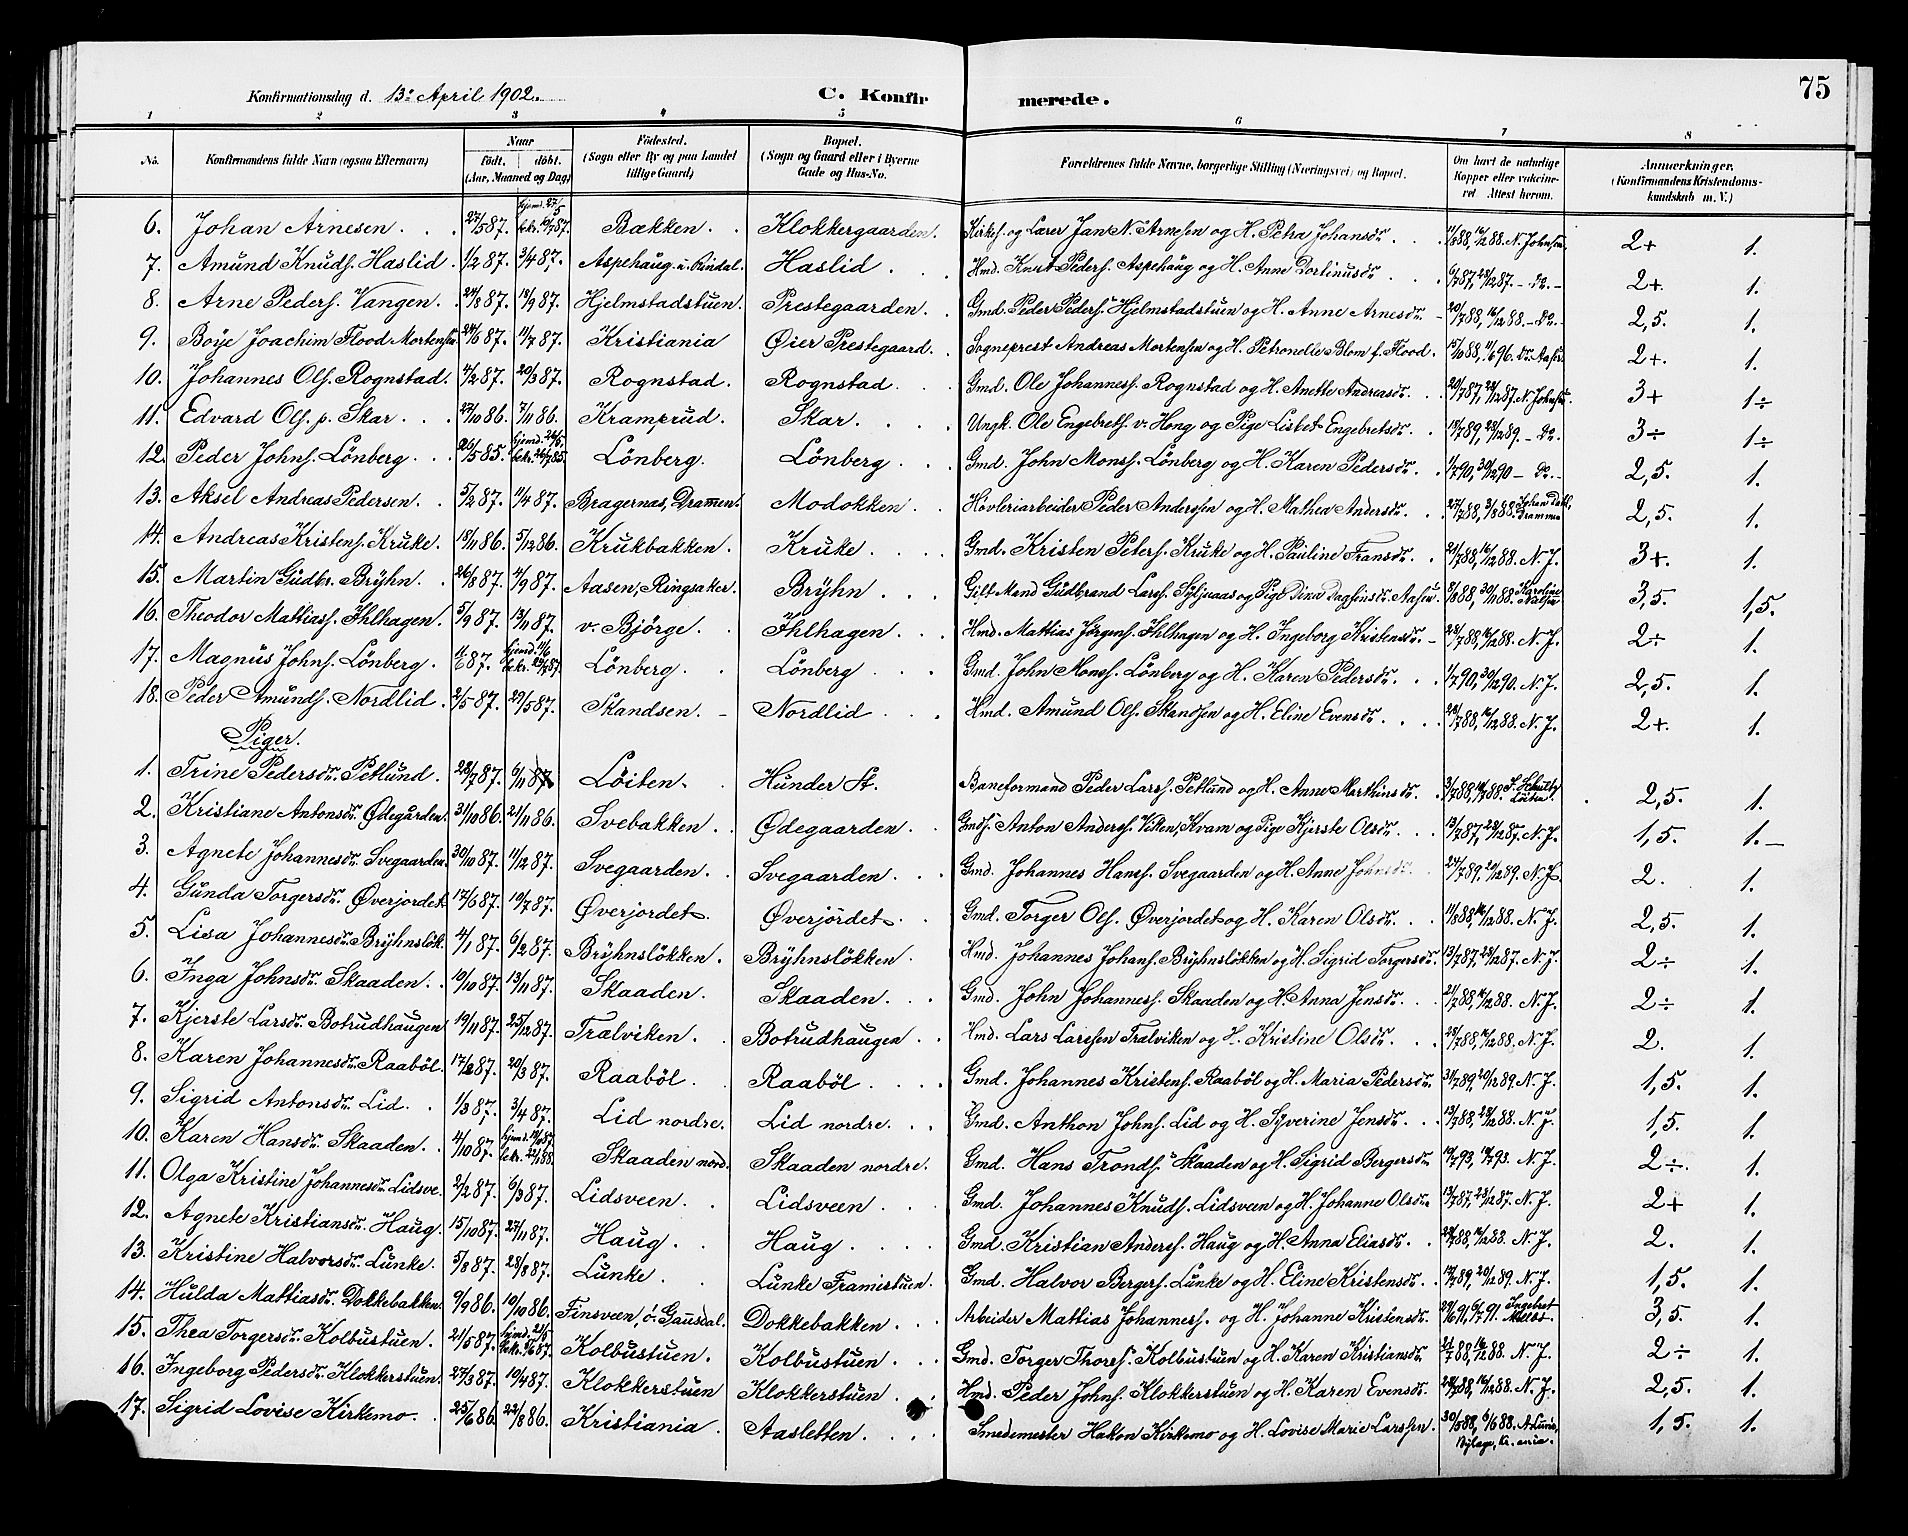 75
Konfirmationsdag d. 13: April 1902.
C. Konfirmerede.
1 2 3 4 5 6 7 8
No. Konfirmandens fulde Navn (ogsaa Efternavn) Naar født, døbt. (Aar, Maaned og Dag) Fødested. (Sogn eller By og paa Landet tillige Gaard) Bopæl. (Sogn og Gaard eller i Byerne Gade og Hus-No. Forældrenes fulde Navne, borgerlige Stilling (Næringsvei) og Bopæl. Om havt de naturlige Kopper eller vakcineret. Attest herom. Anmærkninger, (Konfirmandens Kristendomskundskab m. V.)
6. Johan Arnesen 27/5 87. hjemd. 27/5 bekr. 10/7 87. Bakken. Klokkergaarden. Kirkes. og Lærer Jan N. Arnesen og H. Petra Johansdr. 11/8 88, 16/12 88. N. Johnsen 2+ 1.
7. Amund Knuds. Haslid 1/2 87. 3/4 87. Aspehaug i Rindal Haslid Hmd. Knut Peders. Aspehaug og H. Anne Dortinusdr. 6/7 87, 28/12 87. - Do. - 2+. 1.
8. Arne Peders. Vangen. 24/8 87. 18/9 87. Hjelmstadstuen. Prestegaarden. Gmd. Peder Peders. Hjelmstadstuen og H. Anne Arnesdr. 20/7 88, 16/12 88. - Do. - 2,5. 1.
9. Böye Joachim Flood Mortensen 24/6 87. 11/7 87. Kristiania Øier Prestegaard. Sogneprest Andreas Mortensen og H. Petronelle Blom f. Flood. 15/10 88, 11/6 96. 2+. 1.
10. Johannes Ols. Rognstad. 4/2 87. 20/3 87. Rognstad. Rognstad. Gmd. Ole Johanness. Rognstad og H. Anette Andreasdr. 20/7 87, 28/12 87. N. Johnsen. 3+ 1÷
11. Edvard Ols. p. Skar 27/10 86. 7/11 86. Kramprud. Skar. Ungk. Ole Engebrets. v. Hong og Pige Lisbet Engebretsdr. 18/7 89, 28/12 89. - Do. 3÷ 1÷
12. Peder Johns. Lönberg 26/5 85. hjemd. 26/5, bekr. 26/7 85. Lönberg. Lönberg Gmd. John Monss. Lönberg og H. Karen Pedersdr. 1/7 90, 30/12 90 - Do. - 2,5. 1.
13. Aksel Andreas Pedersen. 5/2 87. 11/4 87. Bragernas, Drammen. Modokken Høvleriarbeider Peder Anderssen og H. Mathea Andersdr. 27/7 88, 3/8 88. Johan Dahl, Drammen 2,5. 1.
14. Andreas Kristens. Kruke. 18/11 86. 5/12 86. Krukbakken. Kruke Gmd. Kristen Peters. Kruke og H. Pauline Fransdr. 21/7 88, 16/12 88. N. J. 3+. 1.
15. Martin Gudbr. Bryhn. 26/8 87. 4/9 87. Aasen, Ringsaker. Bryhn Gift Mand Gudbrand Larss. Syljuaas og Pige Dina Dagfinsdr. Aasen. 8/8 88, 30/11 88. Karoline Nilsen 3,5. 1,5.
16. Theodor Mattiass. Ihlhagen. 5/9 87. 13/11 87. v. Björge. Ihlhagen Hmd. Mattias Jörgens. Ihlhagen og H. Ingeborg Kristensdr. 28/7 88, 16/12 88. N. J. 2÷ 1.
17. Magnus Johns. Lönberg. 11/6 87. hjemd. 11/6 bekr. Lönberg. Lönberg Gmd. John Monss. Lönberg og H. Karen Pedersdr. 1/7 90, 30/12 90. N. J. 2,5. 1.
18. Peder Amunds. Nordlid. 2/5 87. 29/5 87. Skandsen. Nordlid Hmd. Amund Ols. Skandsen og H. Eline Evensdr. 28/7 88, 16/12 88. N. J. 2+. 1.
Piger.
1. Trine Pedersdr. Petlund. 28/7 87. 6/11 87. Löiten. Hunder St. Baneformand Peder Larss. Petlund og H. Anne Marthinsdr. 3/7 88, 10/7 88. Löiten. 2,5. 1.
2. Kristiane Antonsdr. Ødegården. 31/10 86. 21/11 86. Svebakken. Ødegaarden. Gmds. Anton Anderss. Vikken, Kvam og Pige Kjerste Olsdr. 13/7 87, 28/12 87. N. J. 1,5. 1. -
3. Agnete Johannesdr. Svegaarden. 30/10 87. 11/12 87. Svegaarden. Svegaarden. Gmd. Johannes Hanss. Svegaarden og H. Anne Johnsdr. 24/7 89, 20/12 89. N. J. 2. 1.
4. Gunda Torgersdr. Øverjordet 17/6 87. 10/7 87. Øverjordet. Øverjordet. Gmd. Torger Ols. Øverjordet og H. Karen Olsdr. 11/8 88, 16/12 88. N. J. 2,5. 1.
5. Lisa Johannesdr. Bryhnslök. 4/1 87. 6/2 87. Bryhnslökken. Bryhnslökken. Hmd. Johannes Johans. Bryhnslökken og H. Sigrid Torgersdr. 13/7 87, 28/12 87. N. J. 2÷ 1.
6. Inga Johnsdr. Skaaden. 10/10 87. 13/11 87. Skaaden. Skaaden. Gmd. John Johanness. Skaaden og H. Anna Jensdr. 21/7 88, 16/12 88. N. J. 2÷ 1.
7. Kjerste Larsdr. Botrudhaugen 19/11 87. 25/12 87. Tralviken. Botrudhaugen Hmd. Lars Larssen Tralviken og H. Kristine Olsdr. 28/7 88, 16/12 88. N. J. 2. 1.
8. Karen Johannesdr. Raaböl. 17/2 87. 20/3 87. Raaböl. Raaböl. Gmd. Johannes Kristens. Raaböl og H. Maria Pedersdr. 31/7 89, 20/12 89. N. J. 1,5. 1.
9. Sigrid Antonsdr. Lid. 1/3 87. 3/4 87. Lid nordre. Lid nordre. Gmd. Anthon Johns. Lid og H. Syverine Jensdr. 13/7 88, 28/12 88. N. J. 1,5. 1.
10. Karen Hansdr. Skaaden. 4/10 87. Skaaden nord. Skaaden nordre. Gmd. Hans Tronds. Skaaden og H. Sigrid Bergersdr. N. J. 2÷. 1.
11. Olga Kristine Johannesdr. Lidsve. 2/2 87. 6/3 87. Lidsveen. Lidsveen Gmd. Johannes Knuds. Lidsveen og H. Johanne Olsdr. 13/7 87, 28/12 87. N. J. 2+ 1.
12. Agnete Kristiansdr. Haug. 15/10 87. 27/11 87. Haug. Haug Gmd. Kristian Anders. Haug og H. Anna Eliasdr. 28/7 88, 16/12 88. N. J. 2. 1.
13. Kristine Halvorsdr. Lunke. 5/8 87. 28/8 87. Lunke. Lunke Framistuen. Gmd. Halvor Bergers. Lunke og H. Eline Kristensdr. 20/12 89. N. J. 1,5. 1.
14. Hulda Mattiasdr. Dokkebakken. 9/9 86. 10/10 86. Finsveen, ö. Gausdal. Dokkebakken Arbeider Mattias Johanness. og H. Johanne Kristensdr. 29/6 91, 6/7 91. Ingebret 3,5 1.
15. Thea Torgersdr. Kolbustuen. 21/5 87. hjemd. 21/5 Kolbustuen. Kolbustuen Gmd. Torger Thores. Kolbustuen og H. Karen Kristiansdr. 16/12 88. N. J. 2÷ 1.
16. Ingeborg Pedersdr. Klokkerstuen. 27/3 87. 10/4 87. Klokkerstuen Klokkerstuen Hmd. Peder Johns. Klokkerstuen og H. Karen Evensdr. 28/7 88, 16/12 88. N. J. 2,5. 1.
17. Sigrid Lovise Kirkemo. 25/6 86. 22/8 86. Kristiania Aasletten. Smedemester Hakon Kirkemo og H. Lovise Marie Larssen. 30/5 88, 6/6 88. A. Lund, Bylæge, Kr.ania. 1,5. 1.